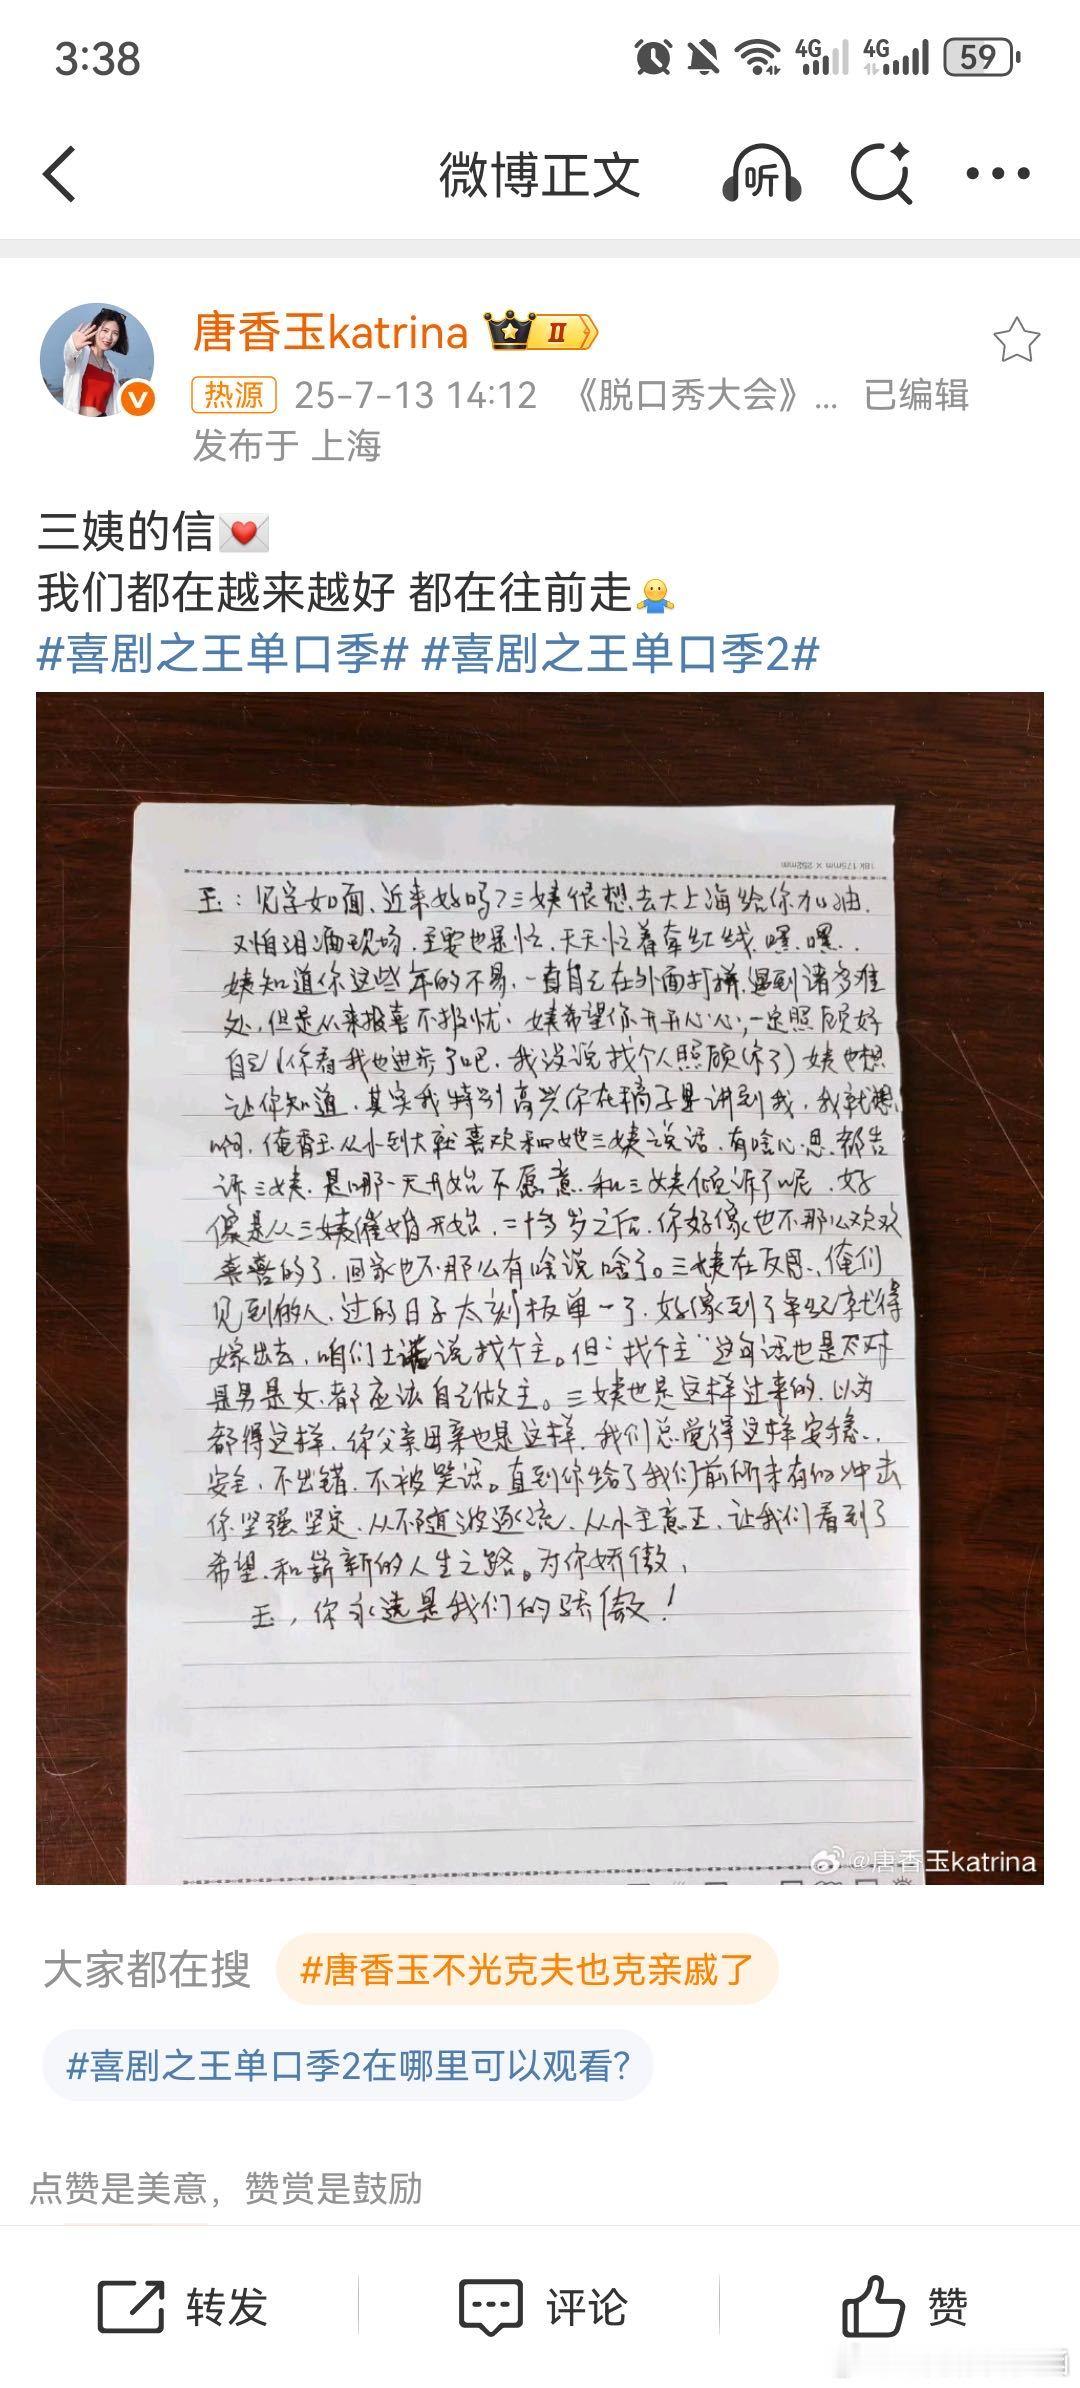 3:38
4G
4G
59
微博正文
听
唐香玉katrina
II
热源 25-7-13 14:12 《脱口秀大会》... 已编辑
发布于 上海
三姨的信
我们都在越来越好 都在往前走
#喜剧之王单口季# #喜剧之王单口季2#
18K 175mm × 252mm
玉：见字如面、近来好吗？三姨很想去大上海给你加油.
又怕泪洒现场，主要也是忙，天天忙着牵红线，嘿、嘿..
姨知道你这些年的不易，一直自己在外面打拼，遇到诸多难
处，但是从来报喜不报忧、姨希望你开开心心，一定照顾好
自己（你看我也进步了吧，我没说找个人照顾你了）姨也想
让你知道，其实我特别高兴你在稿子里讲到我，我就想
啊，俺香玉从小到大就喜欢和她三姨说话，有啥心思都告
诉三姨，是哪一天开始不愿意和三姨倾诉了呢，好
像是从三姨催婚开始，二十多岁之后，你好像也不那么欢欢
喜喜的了，回家也不那么有啥说啥了。三姨在反思，俺们
见到的人，过的日子太刻板单一了，好像到了年纪就得
嫁出去，咱们土话说找个主。但“找个主”这句话也是不对
是男是女，都应该自己做主。三姨也是这样过来的，以为
都得这样，你父亲母亲也是这样，我们总觉得这样安稳..
安全，不出错，不被笑话。直到你给了我们前所未有的冲击
你坚强坚定，从不随波逐流，从小主意正，让我们看到了
希望，和崭新的人生之路。为你娇傲，
玉，你永远是我们的骄傲！
@唐香玉katrina
大家都在搜 #唐香玉不光克夫也克亲戚了
#喜剧之王单口季2在哪里可以观看?
点赞是美意，赞赏是鼓励
转发 评论 赞